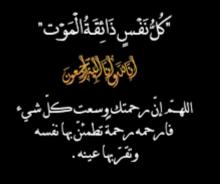 "كُلُّ نَفْسٍ ذَائِقَةُ الْمَوْت"
إنا لله وإنا إليه راجعون
اللهم إنّ رحمتك وسعت كلّ شيء
فارحمه رحمةً تطمئنّ بها نفسه
وتقرّ بها عينه.